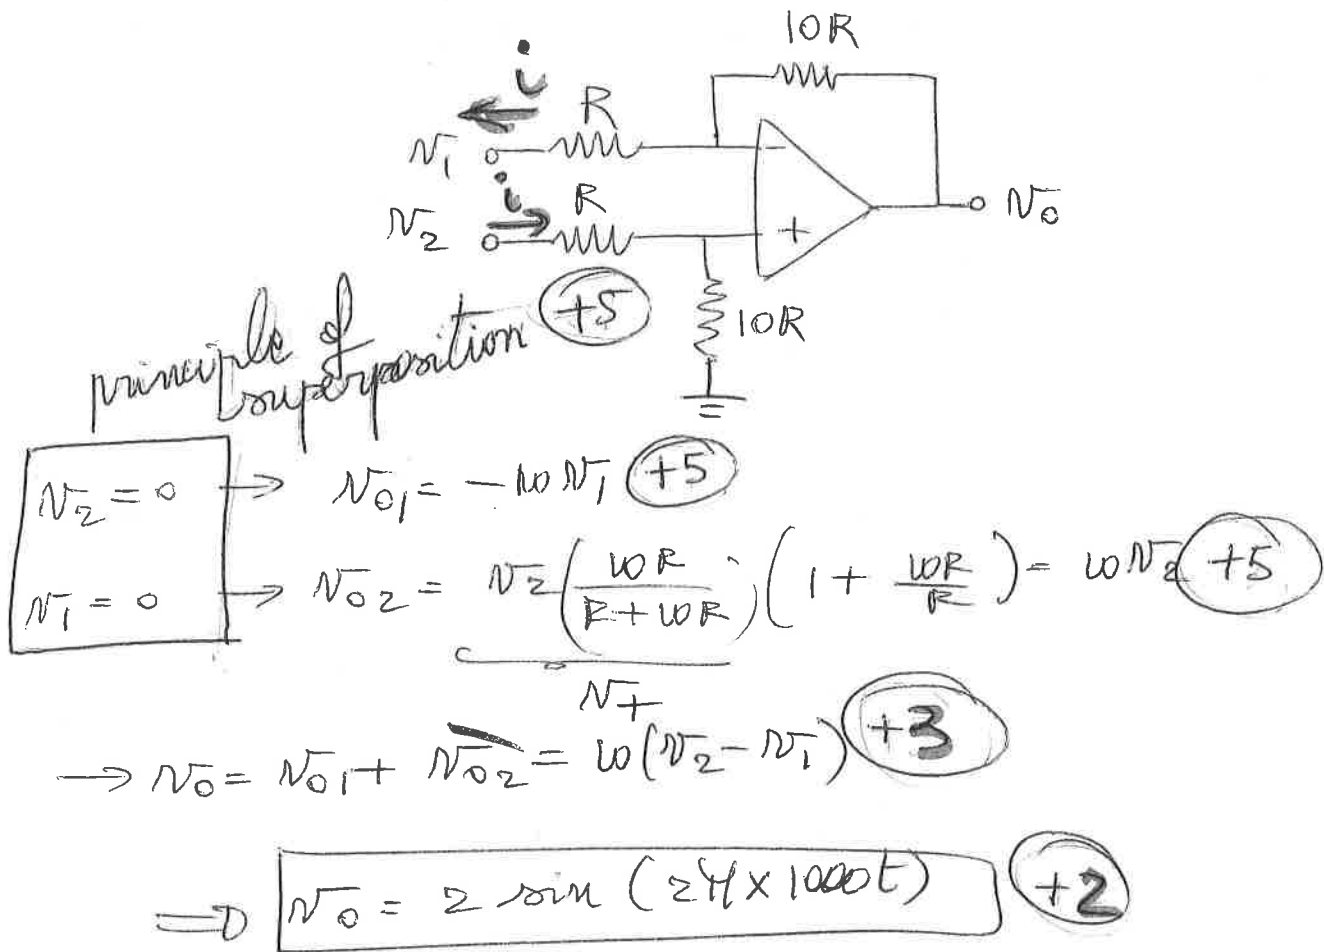 10R
i
R
v₁
−
i
R
v₂
+
v₀
10R
principle of
superposition +5
v₂ = 0 → v₀₁ = −10 v₁ +5
v₁ = 0 → v₀₂ = v₂ (10R / (R + 10R)) (1 + 10R / R) = 10 v₂ +5
v₊
→ v₀ = v₀₁ + v₀₂ = 10 (v₂ − v₁) +3
⇒ v₀ = 2 sin (2π × 1000t) +2